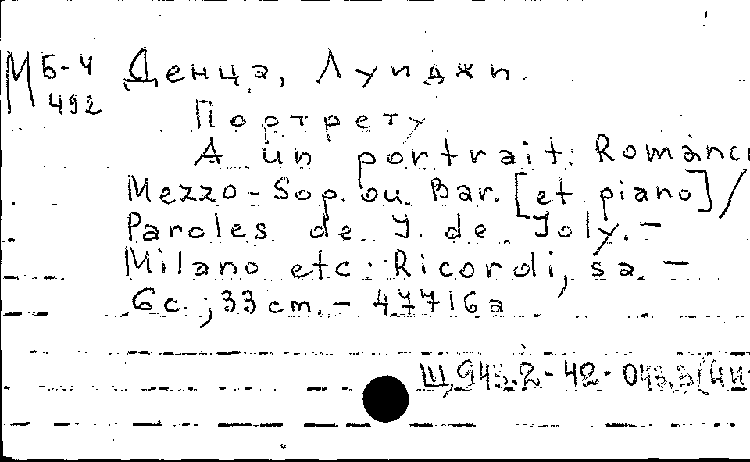 М Б-4 Денца, Луиджи.
492
Портрету
A un portrait: Romanc
Mezzo-Sop. ou Bar. [et piano]/
Paroles de J. de Joly. –
Milano etc: Ricordi, sa. –
6c.; 33 cm. – 47716a
Щ943.2-42-043.3(4И